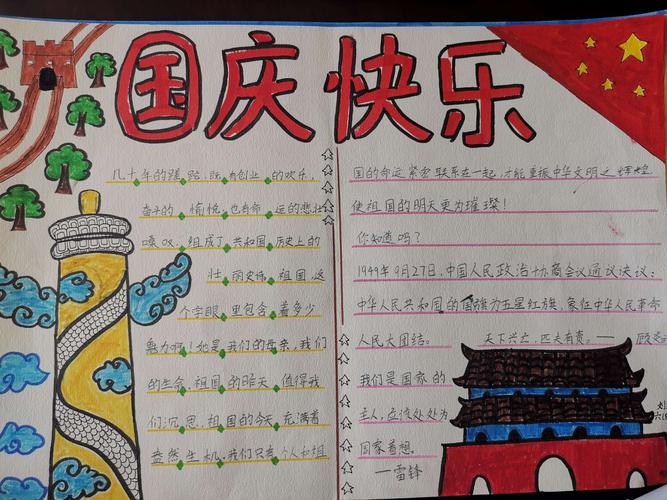 国庆快乐
几十年的蹉跎,既有创业的欢乐,
奋斗的愉悦,也有命运的悲壮
嗟叹,组成了共和国历史上的
壮丽史诗,祖国这
个字眼,里包含着多少
魅力啊!她是我们的母亲,我们
的生命,祖国的昨天值得我
们沉思,祖国的今天充满着
盎然生机,我们只有个人和祖
国的命运紧密联系在一起,才能重振中华文明之辉煌
使祖国的明天更为璀璨!
你知道吗?
1949年9月27日,中国人民政治协商会议通议决议:
中华人民共和国的国旗为五星红旗,象征中华人民革命
人民大团结。
天下兴亡,匹夫有责。——顾炎
我们是国家的
主人,应该处处为
国家着想。
—雷锋